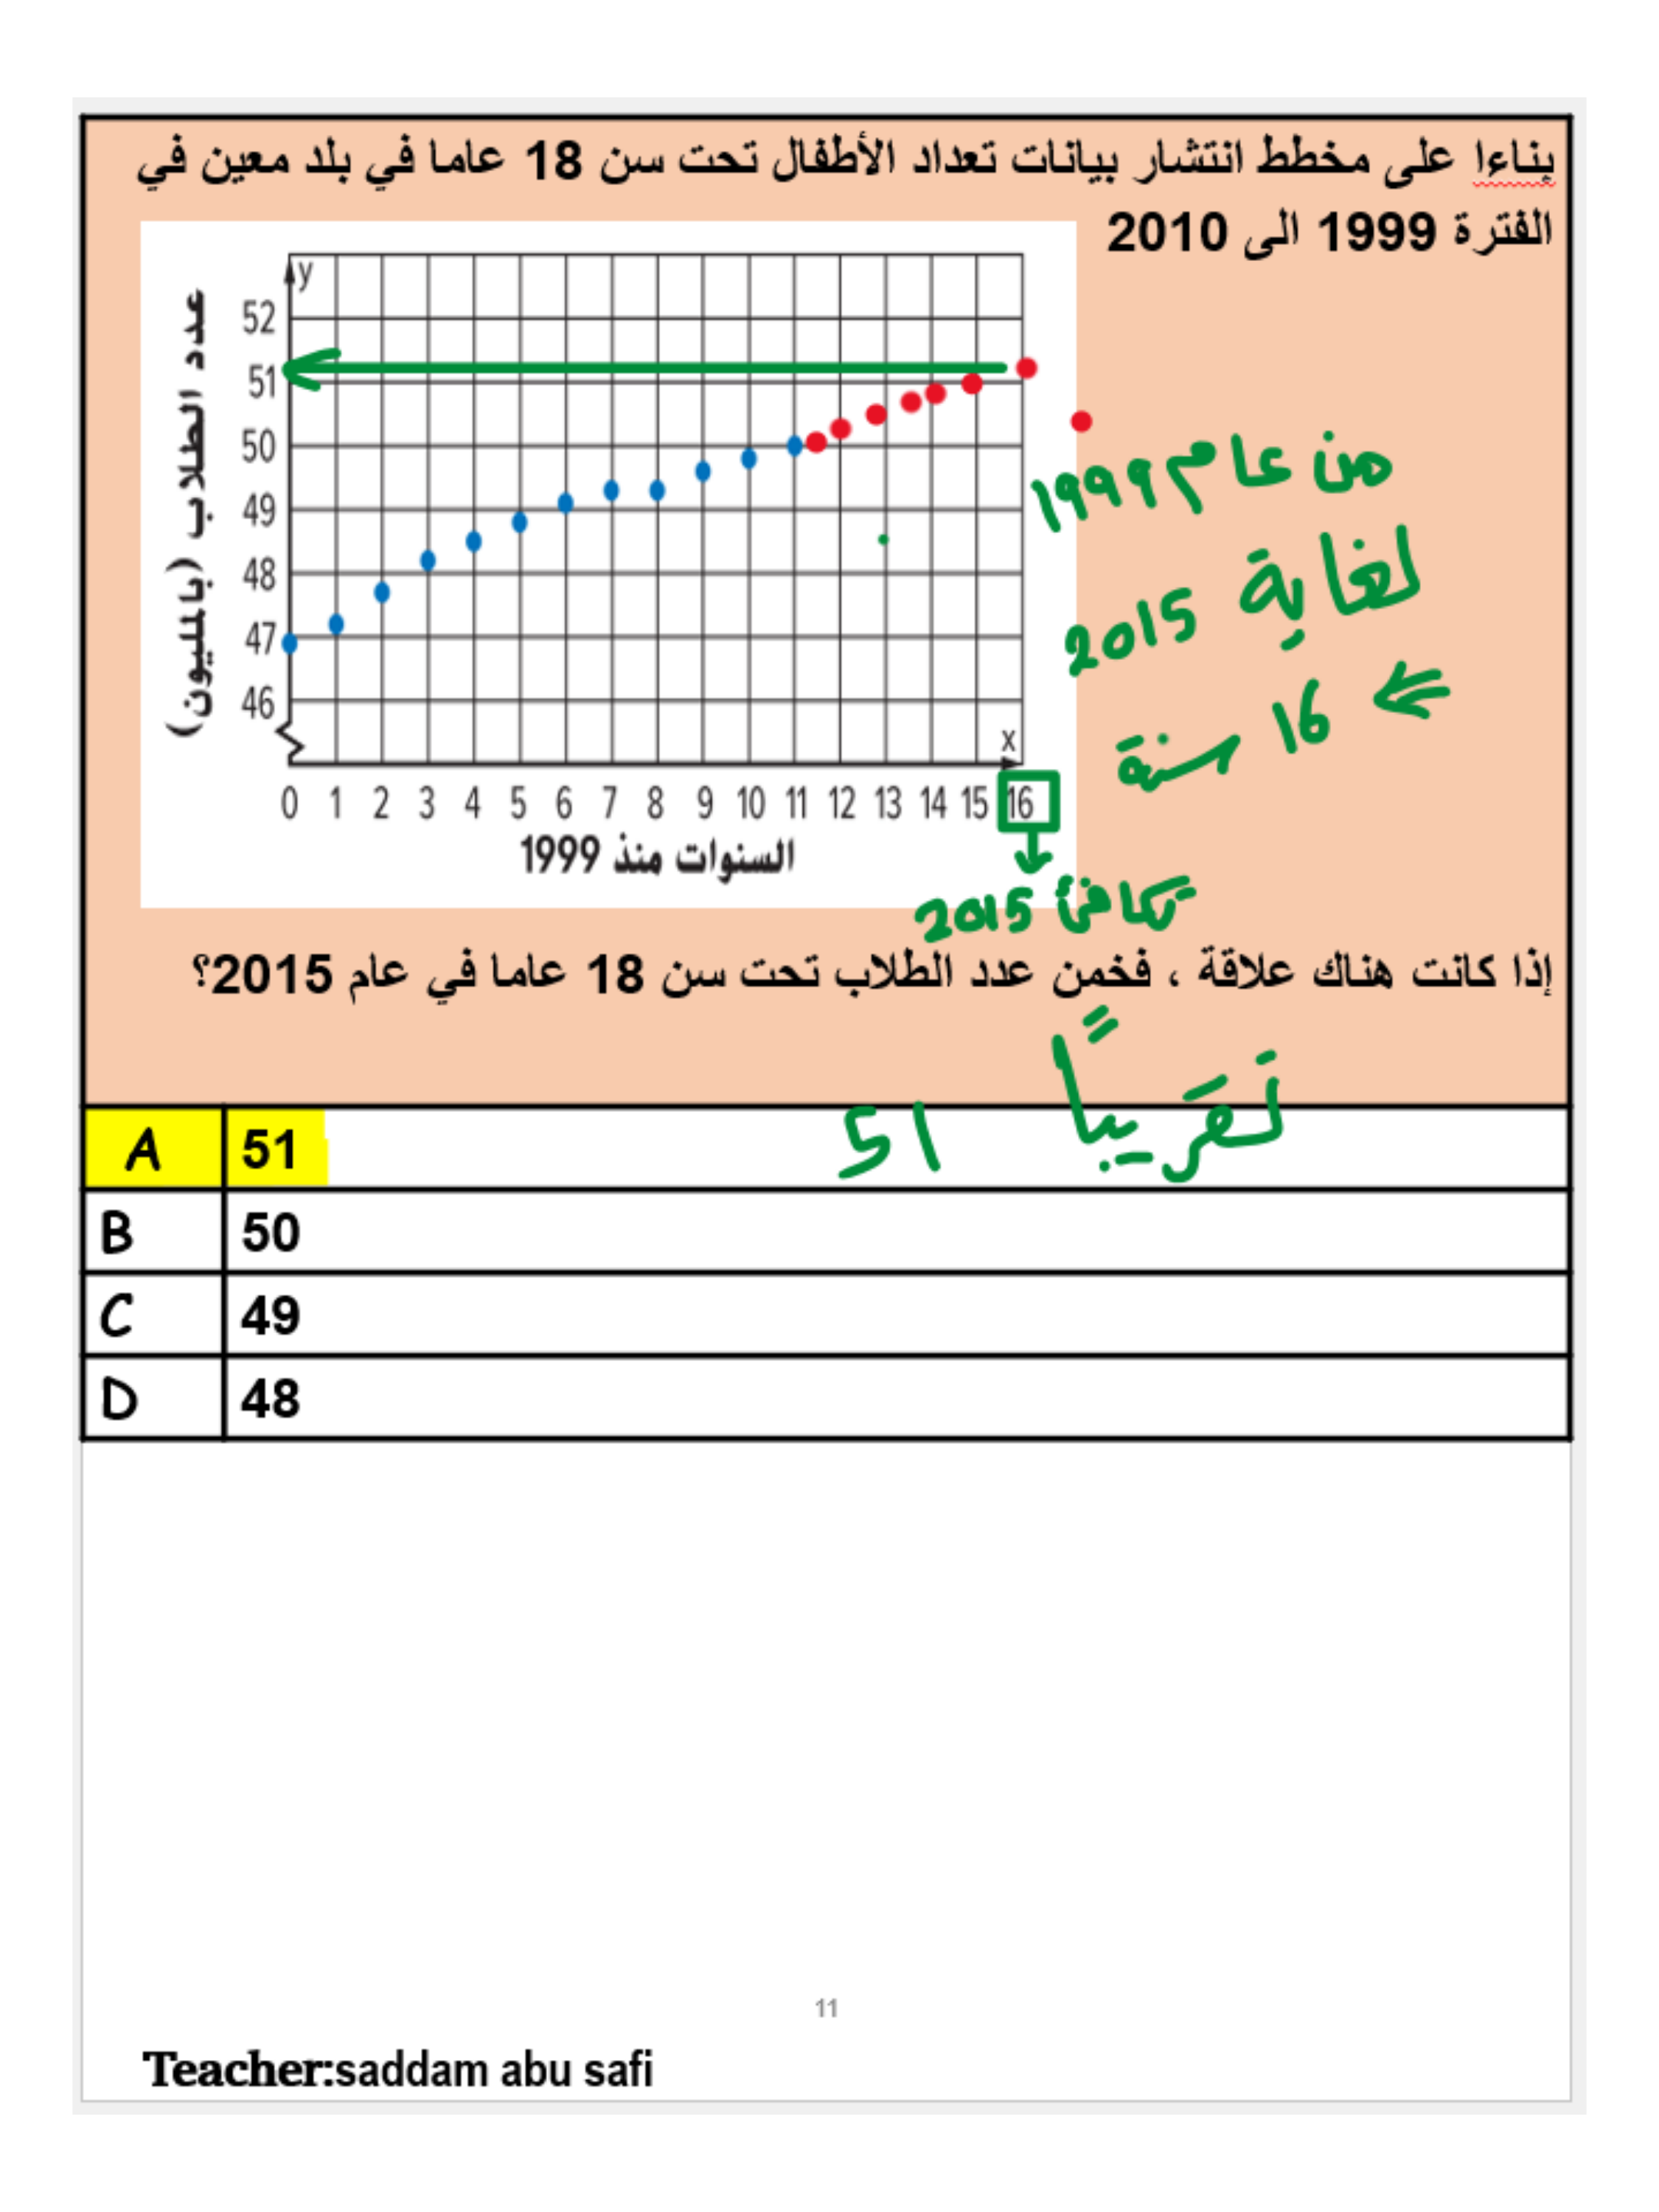 بناءا على مخطط انتشار بيانات تعداد الأطفال تحت سن 18 عاما في بلد معين في
الفترة 1999 الى 2010
y
عدد الطلاب (بالمليون)
52
51
50
49
48
47
46
x
0 1 2 3 4 5 6 7 8 9 10 11 12 13 14 15 16
السنوات منذ 1999
من عام 1999
لغاية 2015
⇐ 16 سنة
تكافئ 2015
إذا كانت هناك علاقة ، فخمن عدد الطلاب تحت سن 18 عاما في عام 2015؟
تقريباً 51
A 51
B 50
C 49
D 48
11
Teacher:saddam abu safi